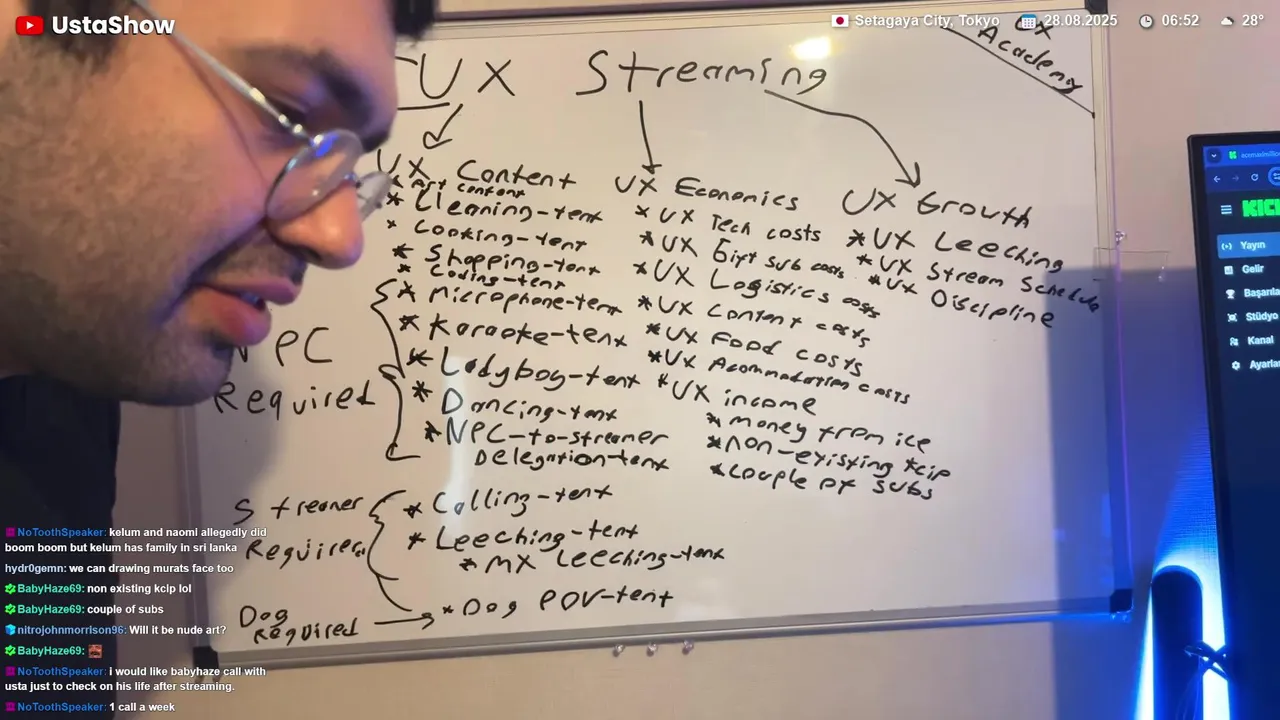 UstaShow
Setagaya City, Tokyo 28.08.2025 06:52 28°
UX
Academy
UX Streaming
UX Content
* Art content
* Cleaning-tent
* Cooking-tent
* Shopping-tent
* Coding-tent
* Microphone-tent
* Karaoke-tent
* Ladyboy-tent
* Dancing-tent
* NPC-to-streamer
Delegation-tent
NPC
Required
Streamer
Required
* Calling-tent
* Leeching-tent
* MX Leeching-tent
Dog
Required
* Dog POV-tent
UX Economics
* UX Tech costs
* UX Gift sub costs
* UX Logistics costs
* UX Content costs
* UX Food costs
* UX Accomodation costs
* UX income
* money from ice
* non-existing kcip
* couple of subs
UX Growth
* UX Leeching
* UX Stream Schedule
* UX Discipline
KICK
Yayın
Gelir
Başarıla
Stüdyo
Kanal
Ayarlar
NoToothSpeaker: kelum and naomi allegedly did
boom boom but kelum has family in sri lanka
hydr0gemn: we can drawing murats face too
BabyHaze69: non existing kcip lol
BabyHaze69: couple of subs
nitrojohnmorrison96: Will it be nude art?
BabyHaze69:
NoToothSpeaker: i would like babyhaze call with
usta just to check on his life after streaming.
NoToothSpeaker: 1 call a week